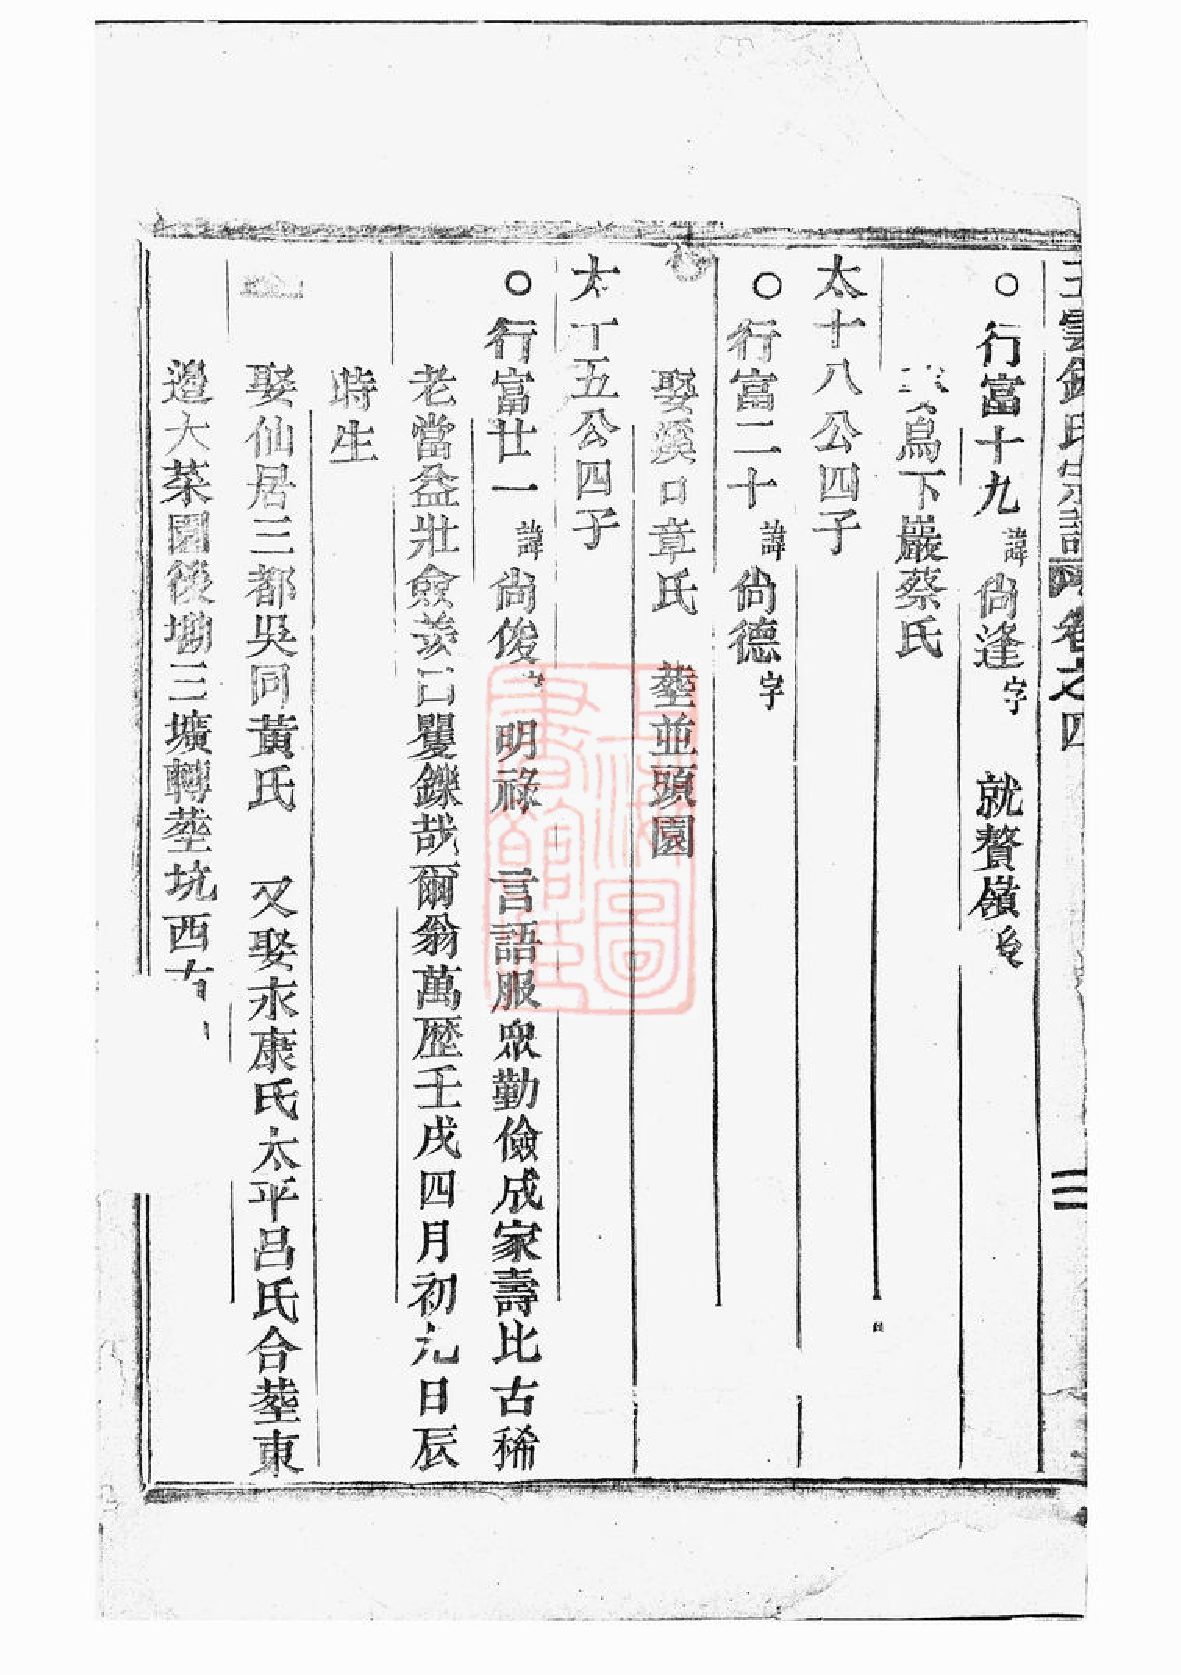 雲錢氏宗譜 卷之四 三
○行富十九 諱尚逢 字 就贅嶺
烏下巖蔡氏
太十八公四子
○行富二十 諱尚德 字
娶溪口章氏 塟並頭園
太十五公四子
○行富廿一 諱尚俊 字明祿 言語服眾勤儉成家壽比古稀
老當益壯僉羨曰矍鑠哉爾翁萬歷壬戌四月初九日辰
時生
娶仙居三都吳同黃氏 又娶永康氏太平呂氏合塟東
邉大菜園後塝三壙轉塟坑西
上海圖書館藏